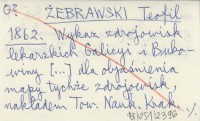 ŻEBRAWSKI Teofil
1862. Wykaz zdrojowisk
lekarskich Galicyi i Buko-
winy [...] dla objaśnienia
mapy tychże zdrojowisk,
nakładem Tow. Nauk. Krak.
B105/2396 %.